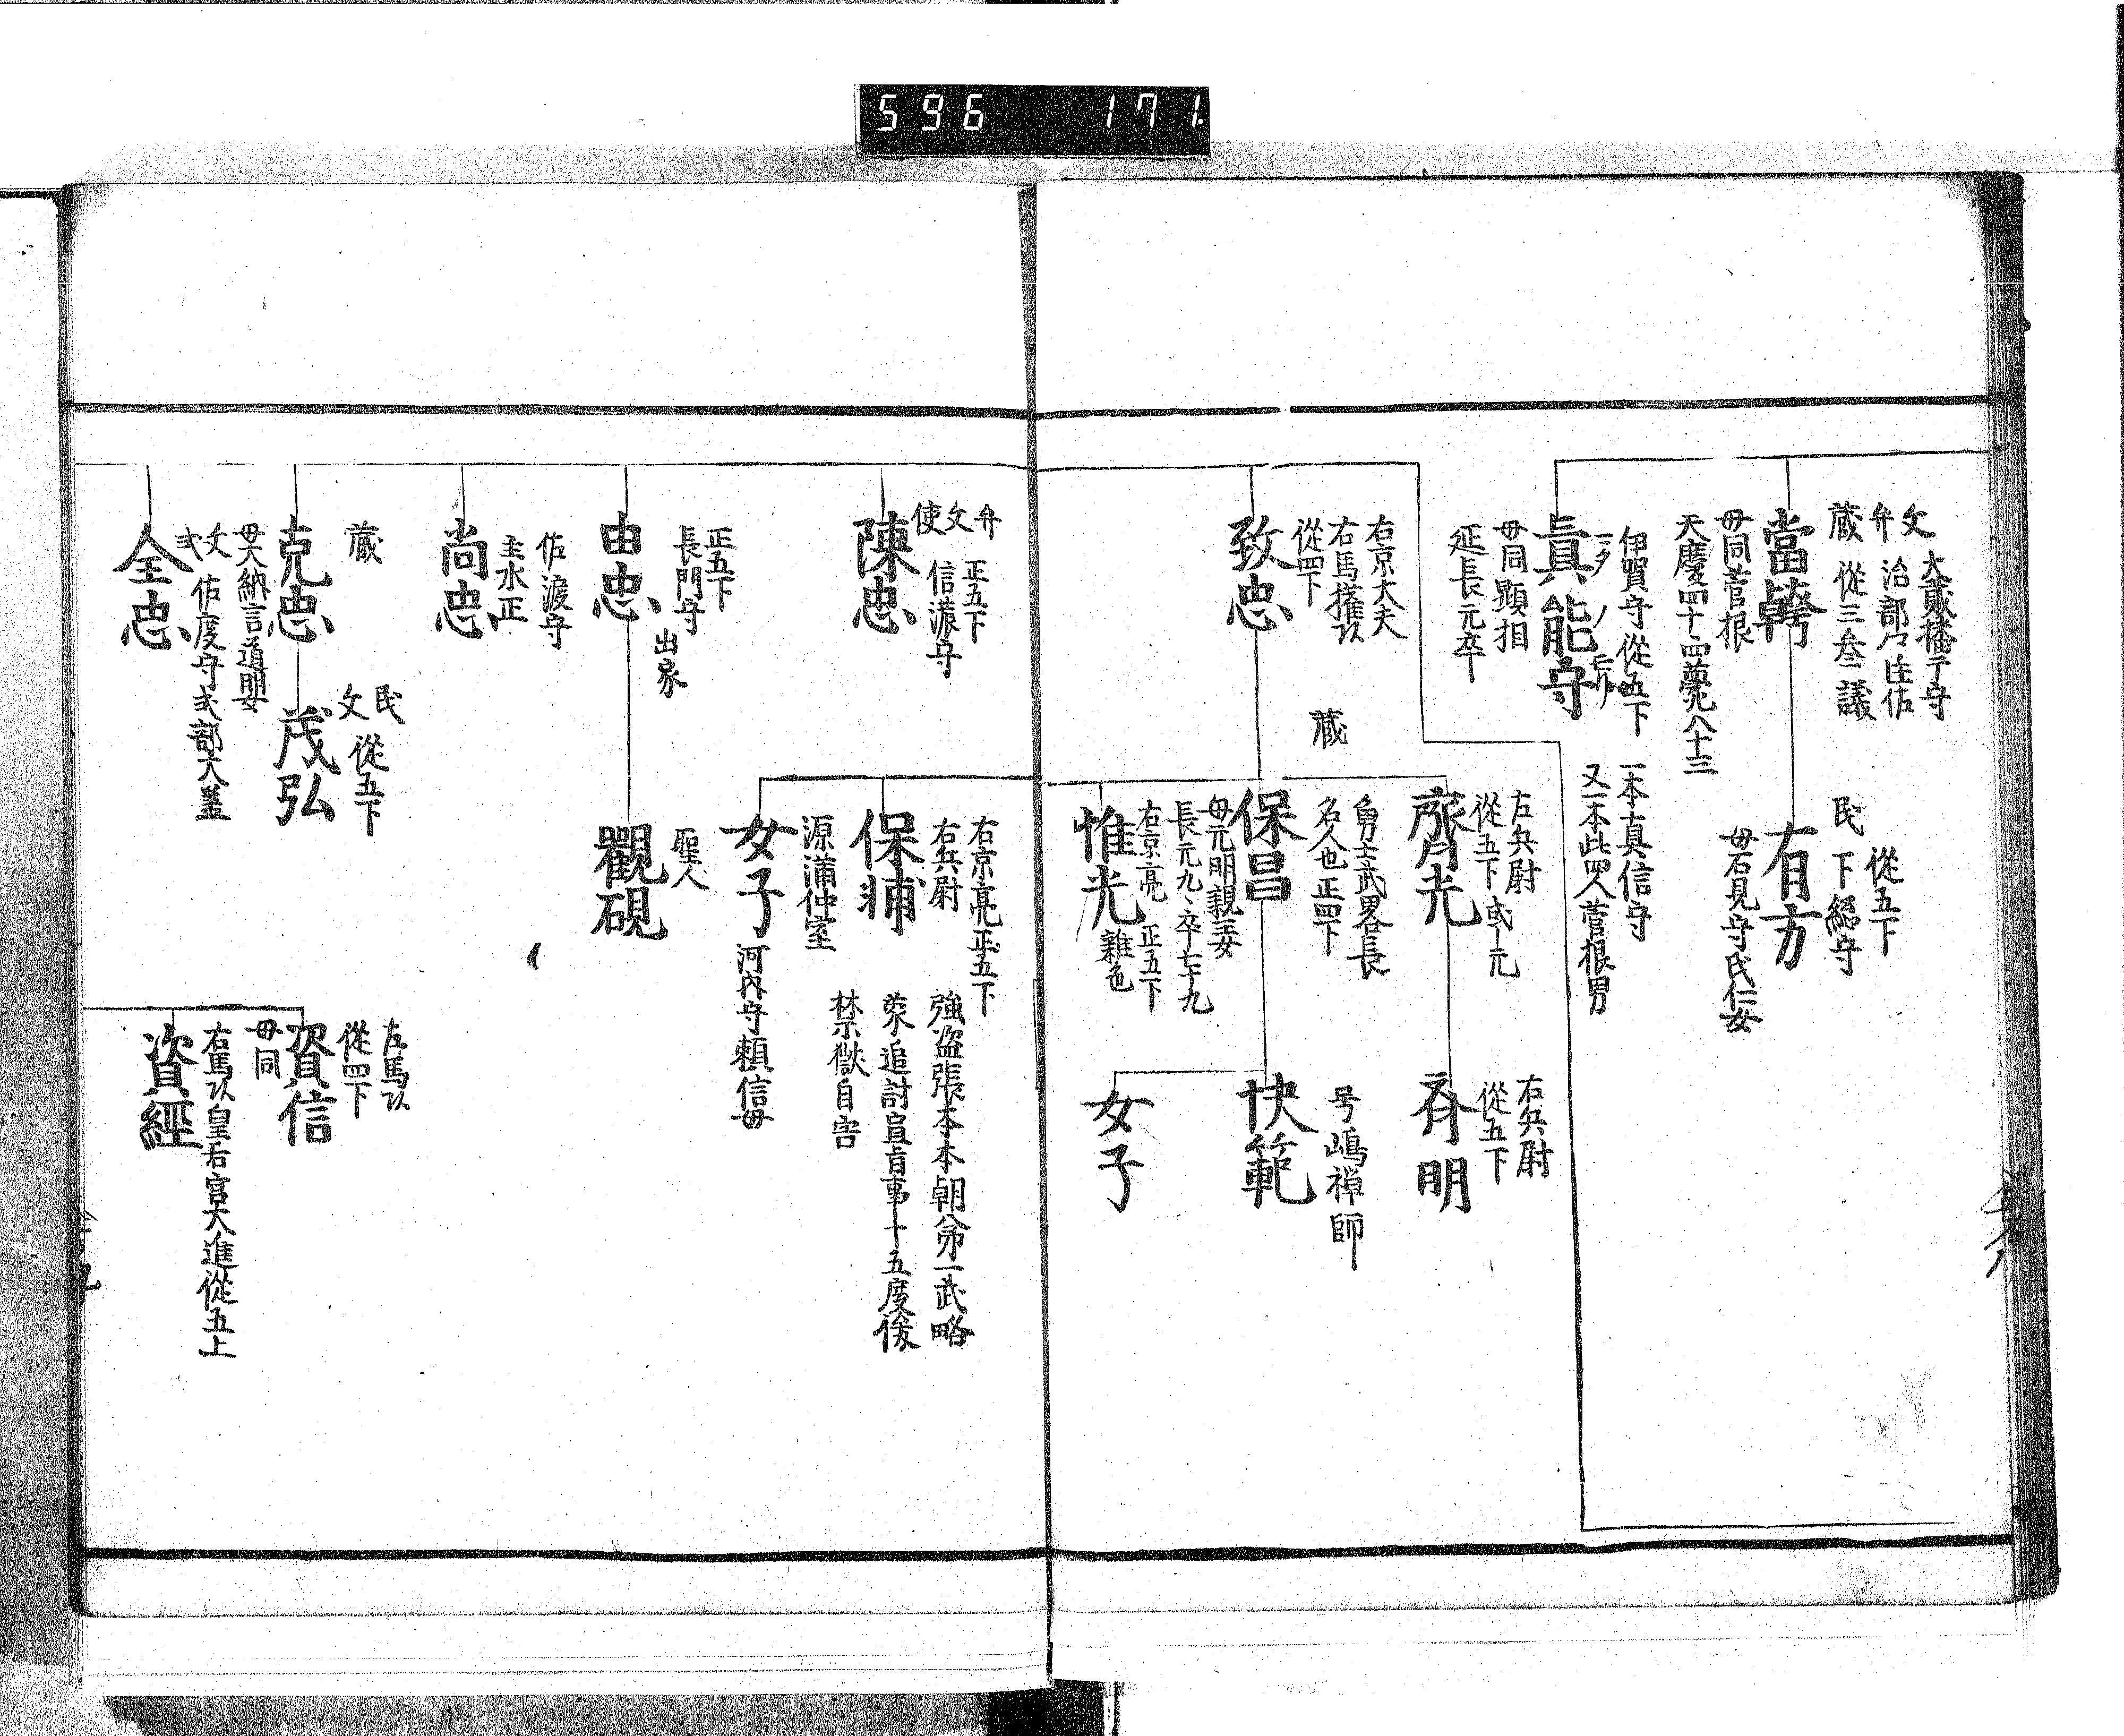 596 171
文 大貳播广守
弁 治部
蔵 從三参議
當幹
母同菅根
天慶四十一四薨八十三
民 從五下
下総守
有方
母石見守氏仁女
伊賀守從五下
眞能守
母同顕相
延長元卒
一本真信守
又一本此四人菅根男
右京大夫
右馬権以
從四下
致忠
蔵
左兵尉
從五下或元
齊光
右兵尉
從五下
斉明
勇士武畧長
名人也正四下
保昌
母元明親王女
長元九、卒七十九
号嶋禅師
快範
女子
右京亮 正五下
惟光
雜色
弁 正五下
文 信濃守
使
陳忠
右京亮正五下
右兵尉
保輔
強盗張本本朝第一武略
蒙追討宣旨事十五度後
禁獄自害
源満仲室
女子
河内守頼信母
正五下
長門守
出家
由忠
聖人
觀硯
佐渡守
主水正
尚忠
蔵
克忠
民 從五下
文
茂弘
母大納言道明女
文 佐度守式部大
式
全忠
左馬以
從四下
資信
母同
右馬以皇右宮大進從五上
資經